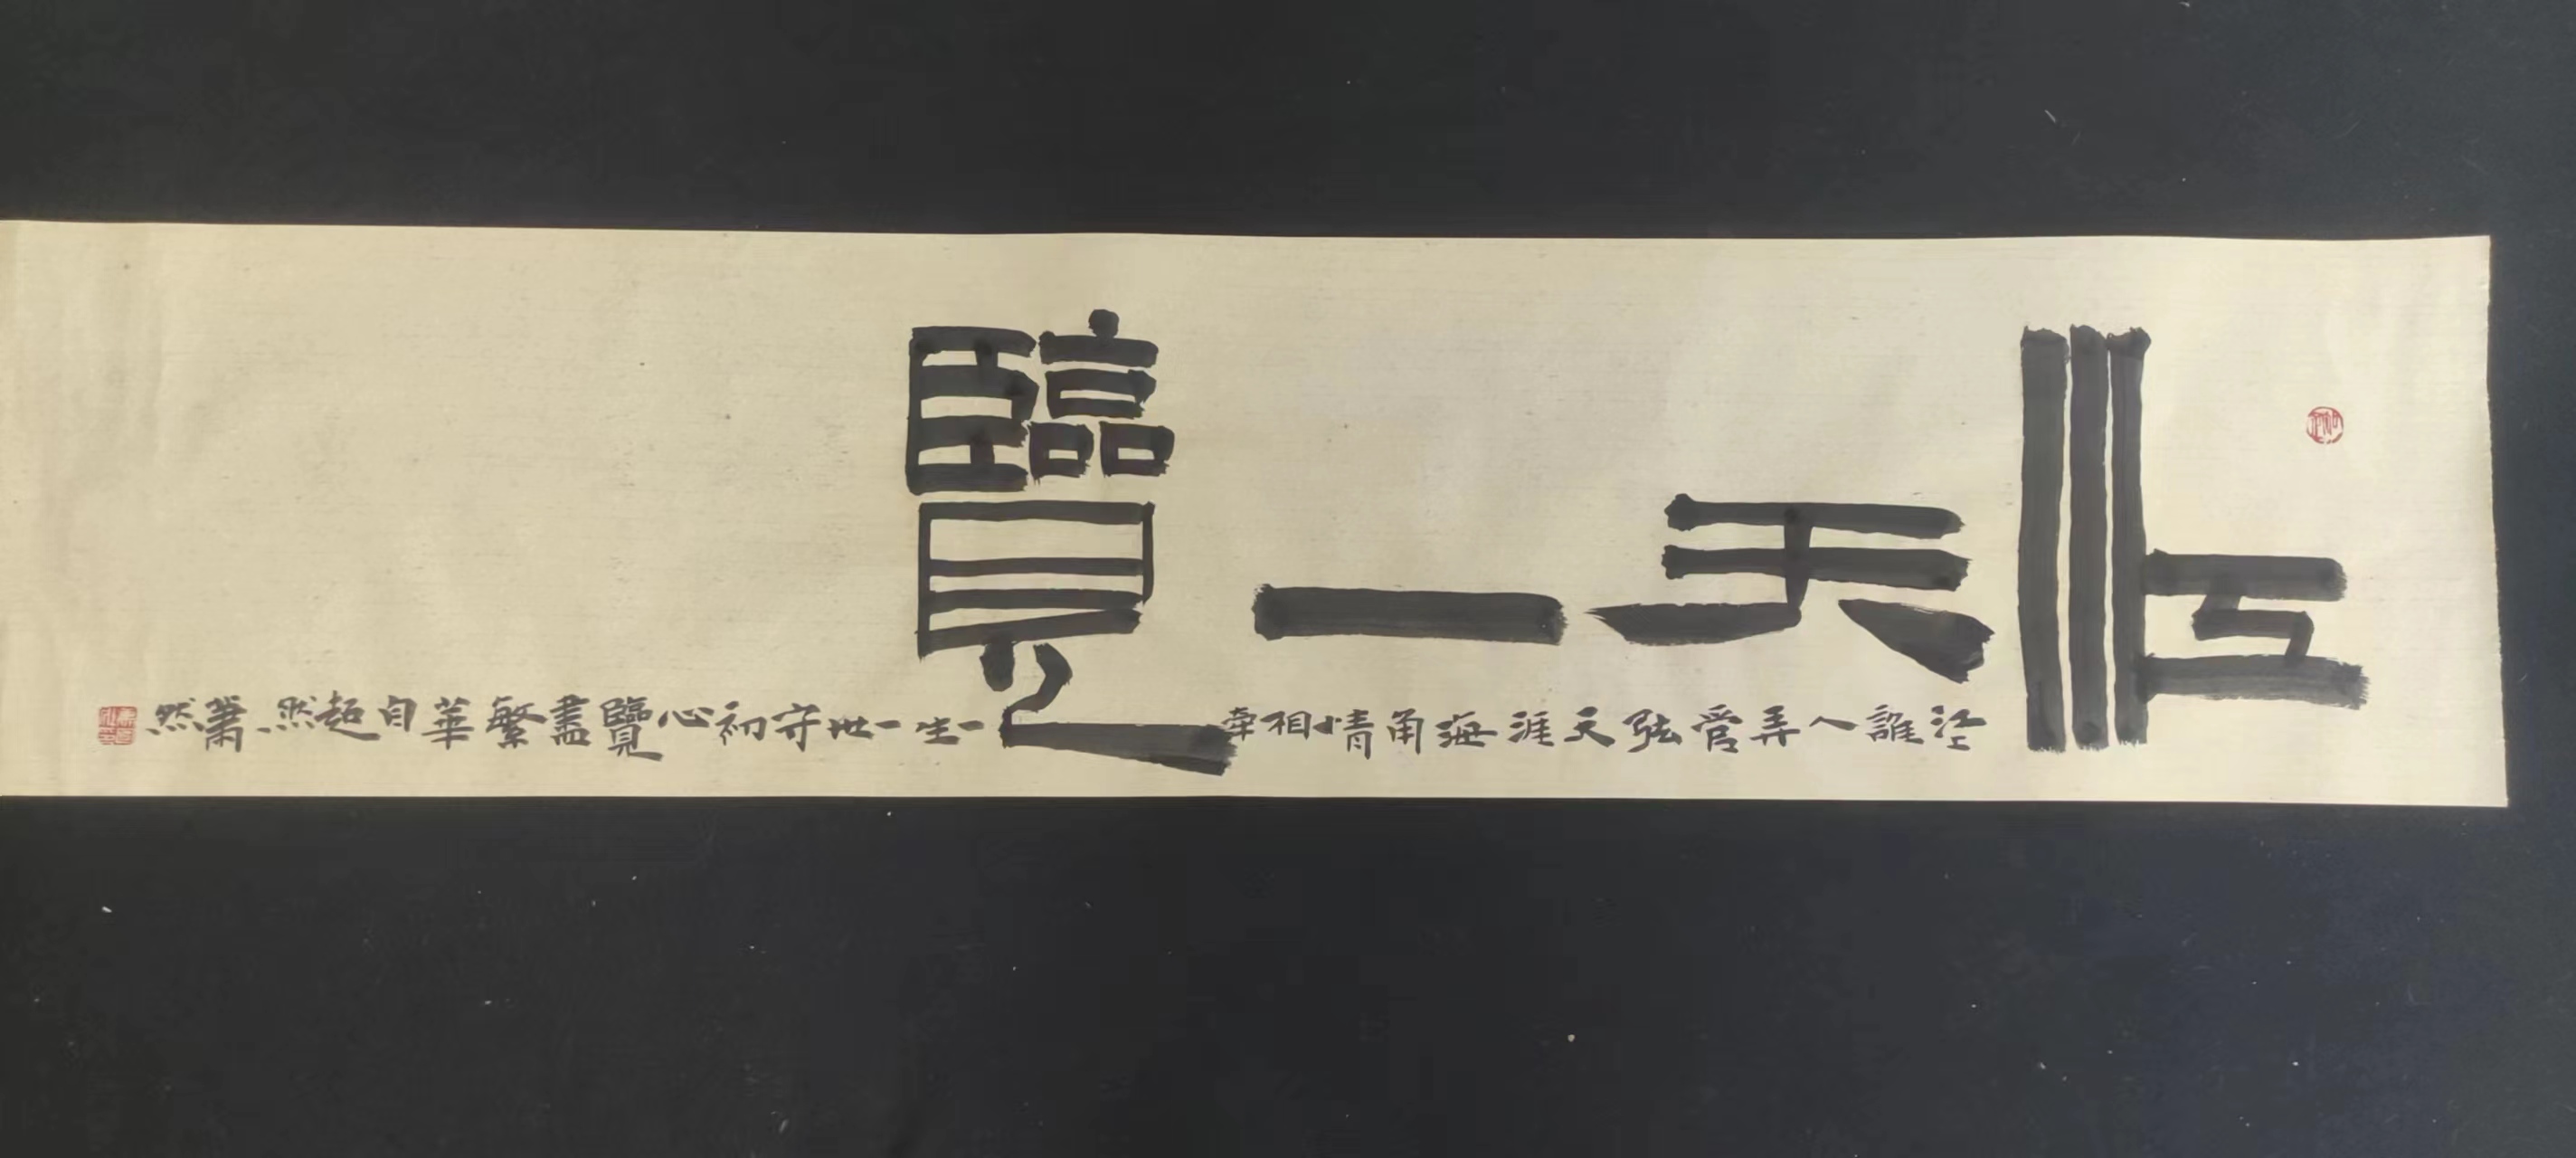 江天一覽
江誰人弄管弦天涯海角情相牽一生一世守初心覽盡繁華自超然蕭然